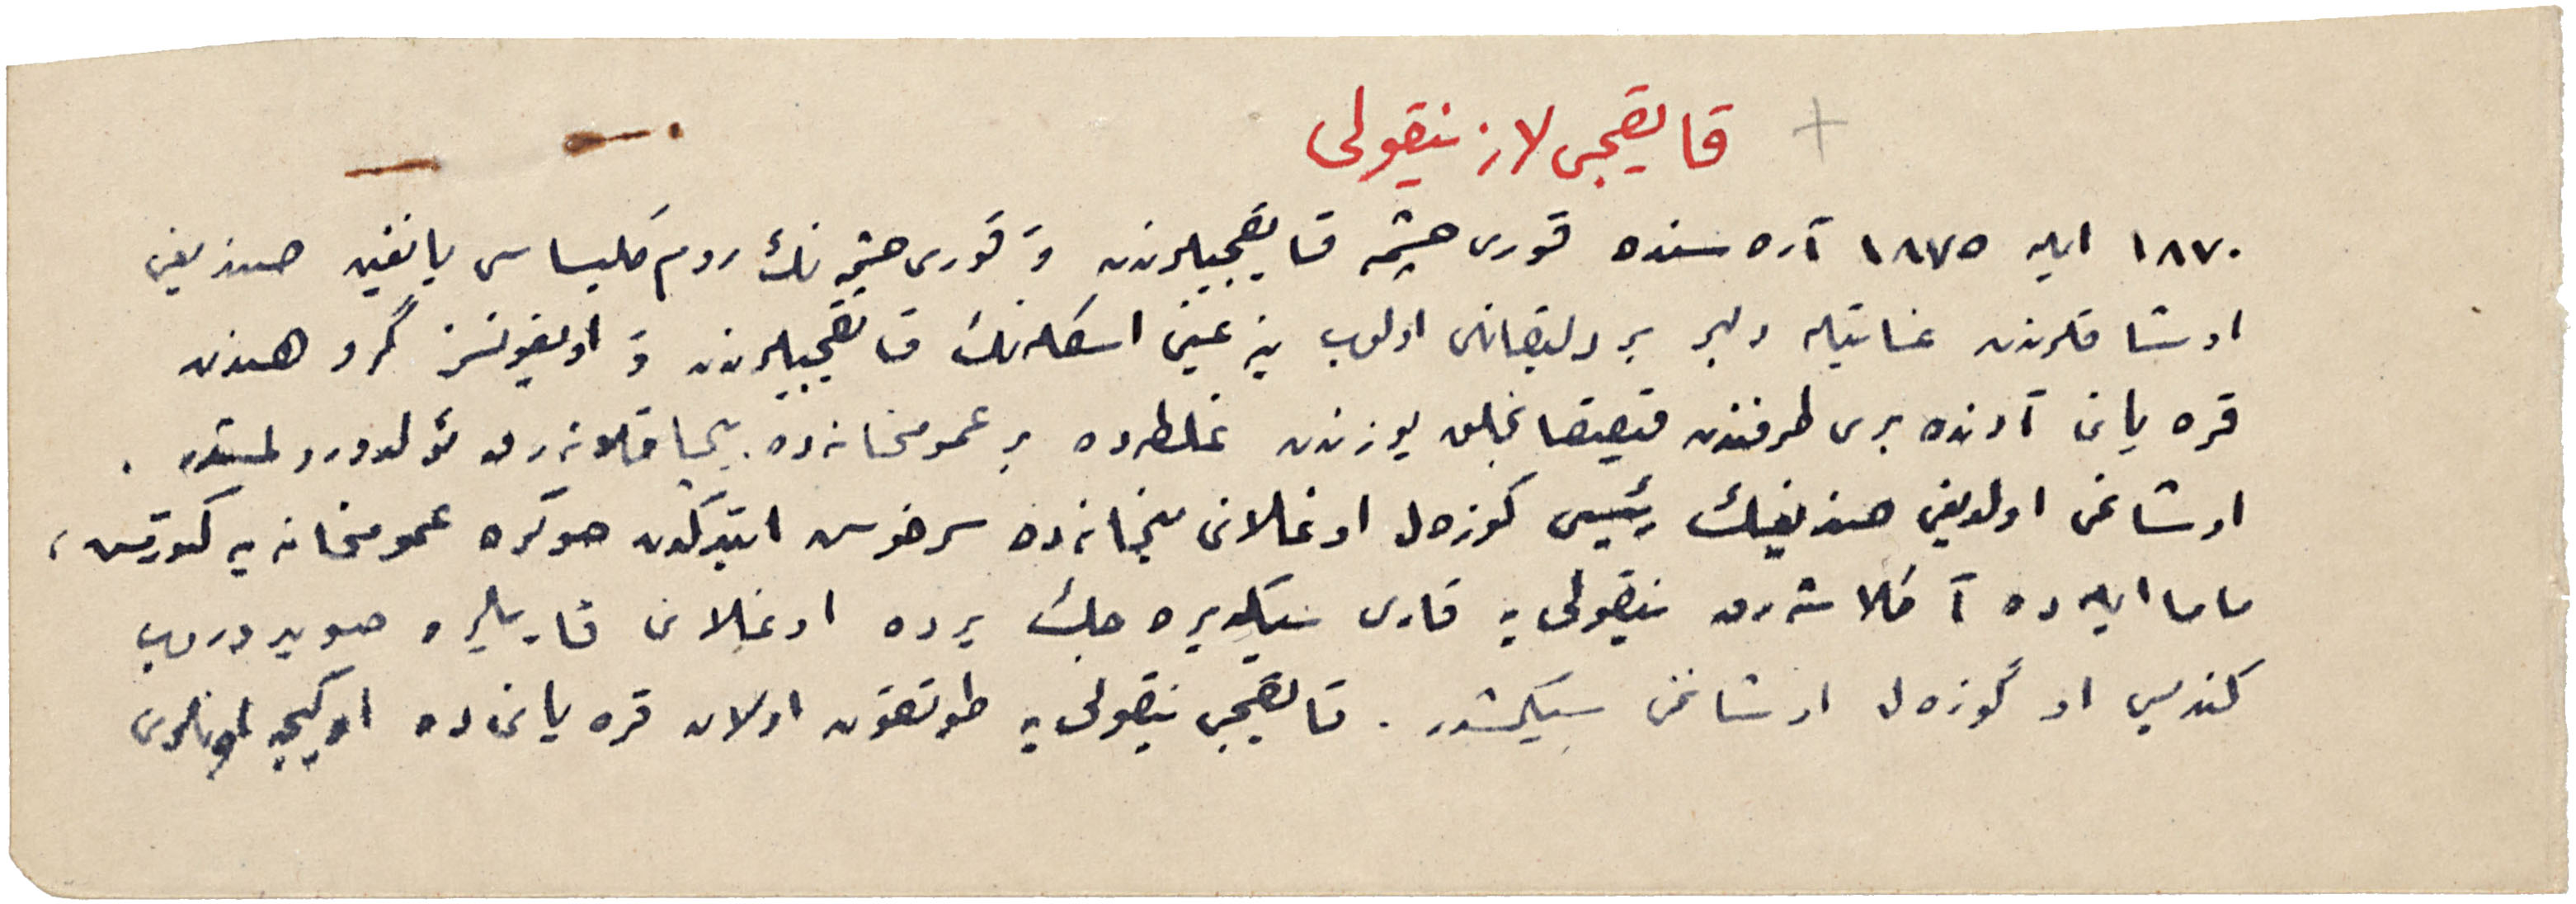 قایقجی لاز نیقولی
١٨٧٠ ایله ١٨٧٥ آره سنده قوری چشمه قایقجیلرندن و قوری چشمه نك روم كلیساسی یانغین صندیغی
اوشاقلرندن غایتله دلبر بر دلیقانلی اولوب ینه عینی اسكله نك قایقجیلرندن و اویغونسز گروهندن
قره یانی آدنده بری طرفندن قیصقانجلق یوزندن غلطه ده بر عمومخانه ده بیچاقلانه رق ئولدورولمشدر .
اوشاغی اولدیغی صندیغك رئیسی كوزه ل اوغلانی میخانه ده سرخوش ایتدكدن صوكره عمومخانه یه كتورتمش ،
ماما ایله ده آكلاشه رق نیقولی یه قاری سیكدیره جك یرده اوغلانی قاریلره صویدوروب
كندیسی او گوزه ل اوشاغی سیكمشدر . قایقجی نیقولی یه طوتقون اولان قره یانی ده او كیجه اونلری